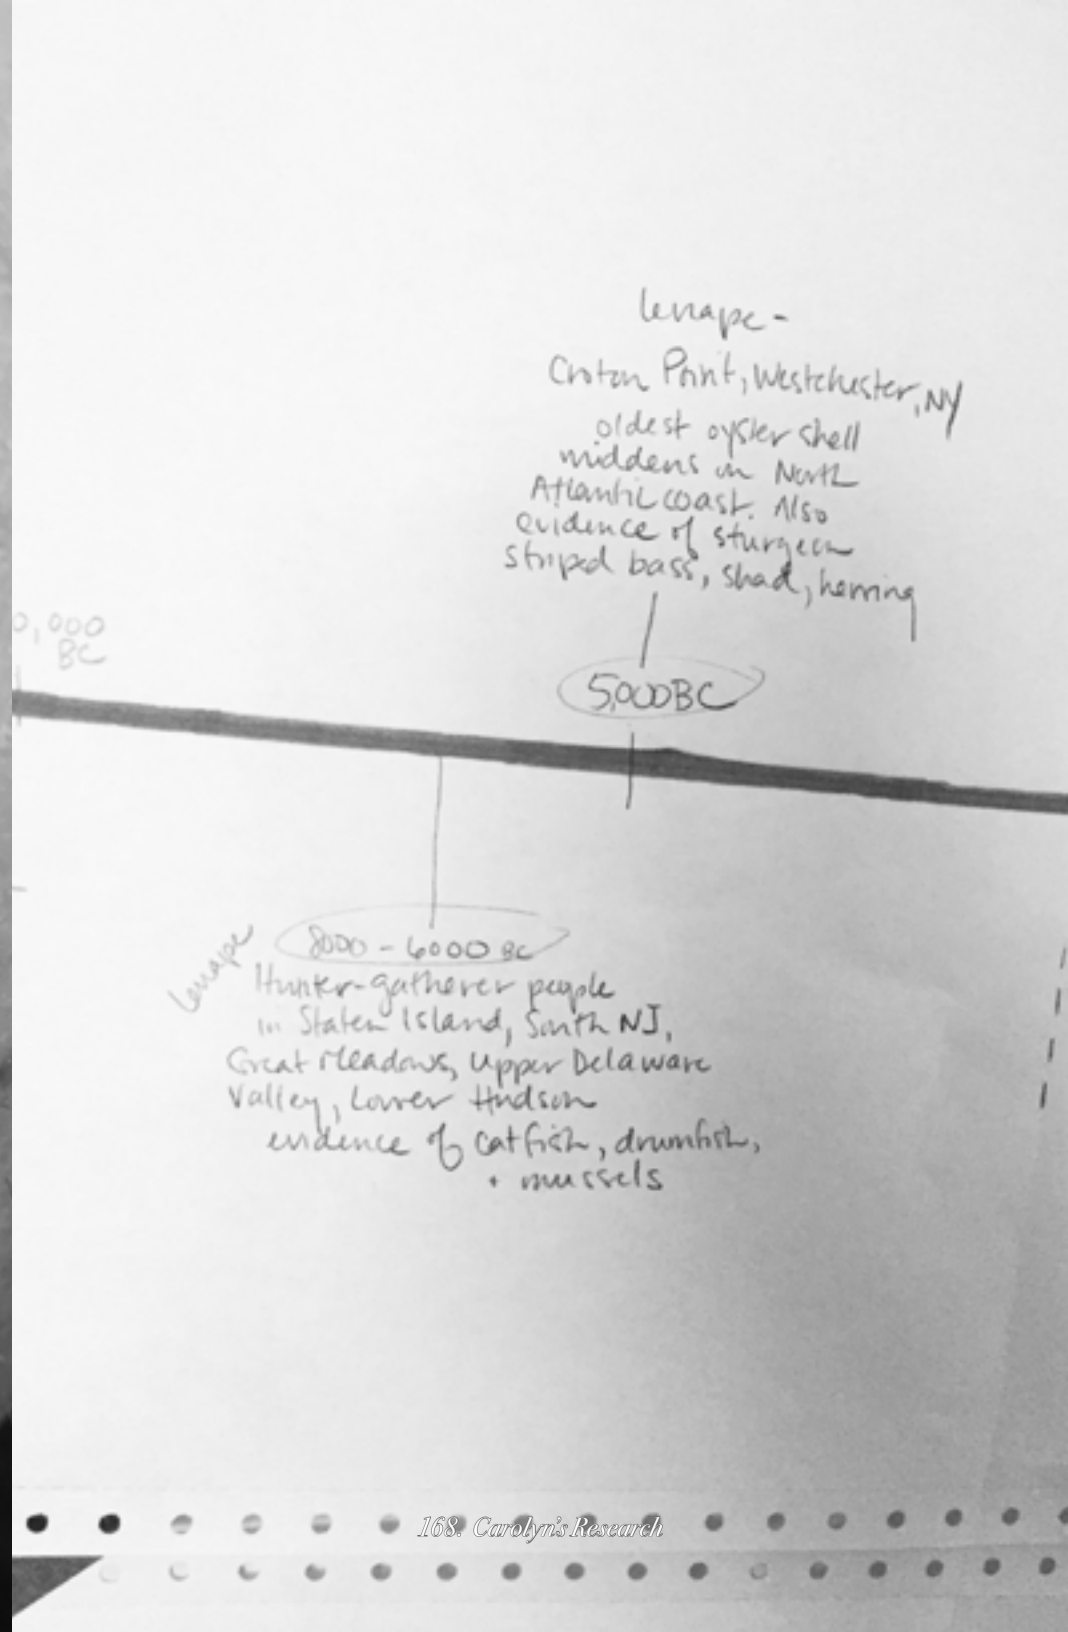 Lenape -
Croton Point, Westchester, NY
oldest oyster shell
middens in North
Atlantic coast. Also
evidence of sturgeon
striped bass, shad, herring
0,000
BC
5,000 BC
8000 - 6000 BC
Lenape
Hunter-gatherer people
in Staten Island, South NJ,
Great Meadows, Upper Delaware
Valley, Lower Hudson
evidence of catfish, drumfish,
+ mussels
168. Carolyn's Research